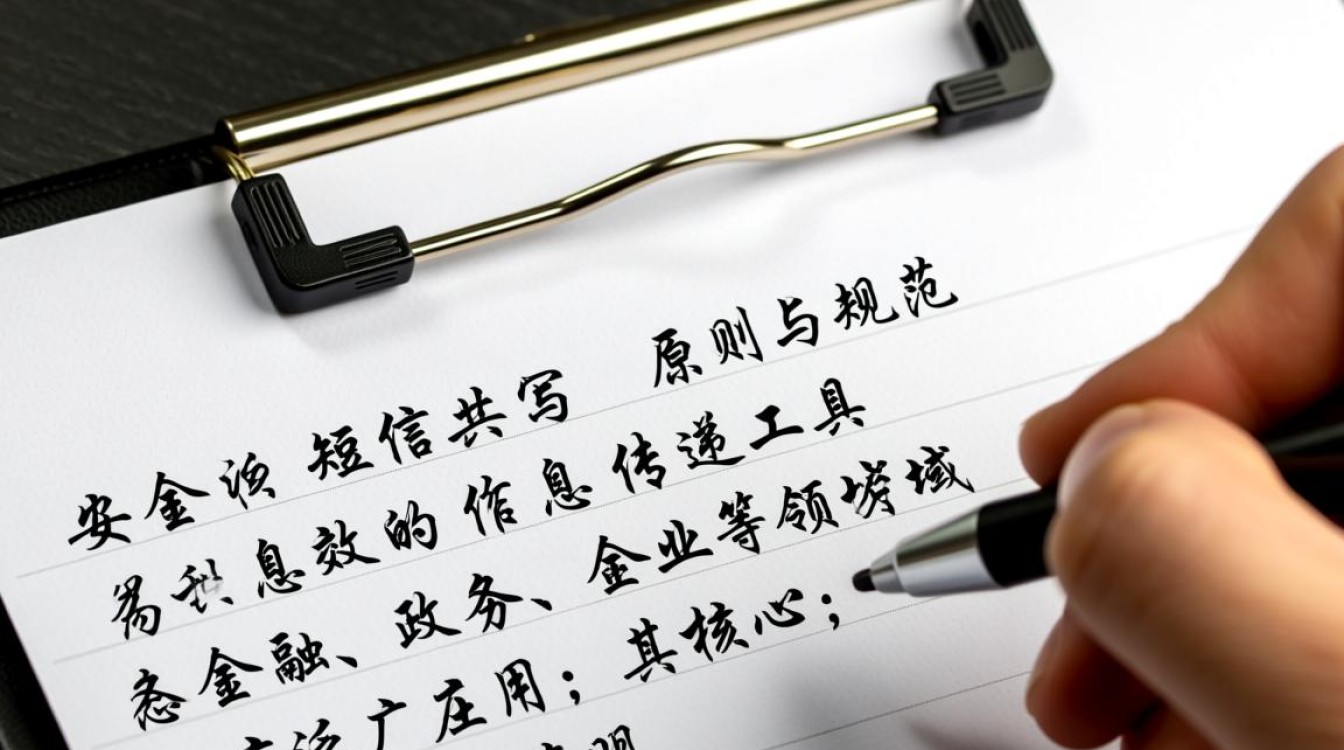 安金 短信共写 原则与规范
息效的 作息传递工具
金融、政务、金业等领 域
广庄用；其核心；
明